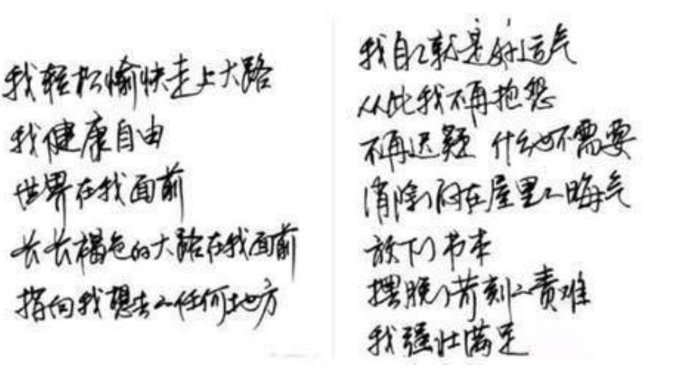 我轻松愉快走上大路
我健康自由
世界在我面前
长长褐色的大路在我面前
指向我想去的任何地方
我自己就是好运气
从此我不再抱怨
不再迟疑 什么也不需要
消除了闷在屋里的晦气
放下了书本
摆脱了苛刻的责难
我强壮满足